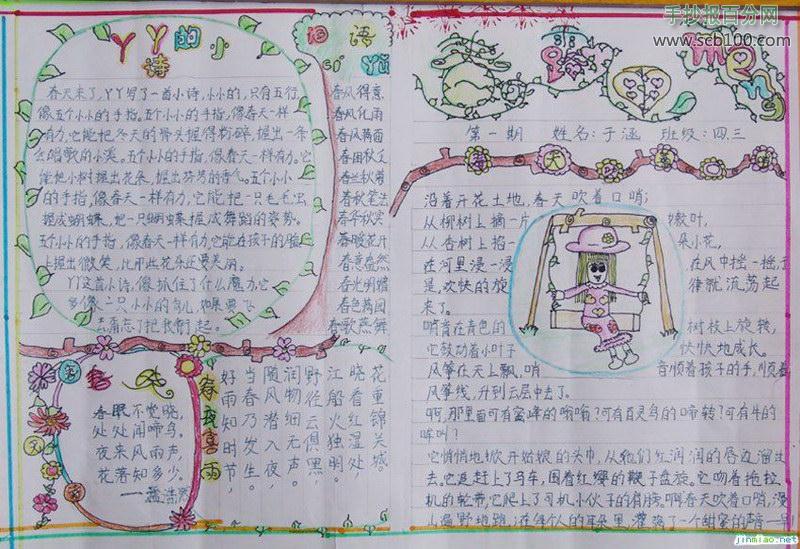 手抄报百分网
www.scb100.com
丫丫的小
诗
春天来了，丫丫写了一首小诗，小小的，只有五行，
像五个小小的手指，五个小小的手指，像春天一样
有力，它能把冬天的骨头握得粉碎，握出一条
会唱歌的小溪。五个小小的手指，像春天一样有力，它
能把小树握出花朵，握出芬芳的香气。五个小小
的手指，像春天一样有力，它能把一只毛毛虫
握成蝴蝶，把一只蝴蝶握成舞蹈的姿势。
五个小小的手指，像春天一样有力，它能在孩子的脸
上握出微笑，比那些花朵还要美丽。
丫丫这首小诗，像抓住了什么魔力，它
多像一只小小的鸟儿，如果要飞
去，请忘了把我衔起。
词语
春风得意
春风化雨
春风满面
春兰秋菊
春秋笔法
春华秋实
春暖花开
春意盎然
春光明媚
春色满园
春歌燕舞
春晓
春眠不觉晓，
处处闻啼鸟。
夜来风雨声，
花落知多少。
——孟浩然
春夜喜雨
好雨知时节，
当春乃发生。
随风潜入夜，
润物细无声。
野径云俱黑，
江船火独明。
晓看红湿处，
花重锦官城。
第一期 姓名：于涵 班级：四三
春天吹着口哨
沿着开花土地，春天吹着口哨；
从柳树上摘一片嫩叶，
从杏树上掐一朵小花，
在河里浸一浸，在风中摇一摇，
是欢快的旋律就流荡起
来了。
哨音在青色的树枝上旋转，
它鼓动着小叶子快快地成长。
风筝在天上飘，哨音顺着孩子的手，顺着
风筝线，升到云层中去了。
啊，那里面可有蜜蜂的嗡嗡？可有百灵鸟的啼转？可有牛的
哞叫？
它悄悄地掀开姑娘的头巾，从她们红润润的唇边溜过
去。它追赶上了马车，围着红缨的鞭子盘旋。它吻着拖拉
机的轮带，它爬上了司机小伙子的肩膀。啊春天吹着口哨，漫
山遍野地跑；在每个人的耳朵里，灌满了一个甜蜜的声音
jinmiao.net